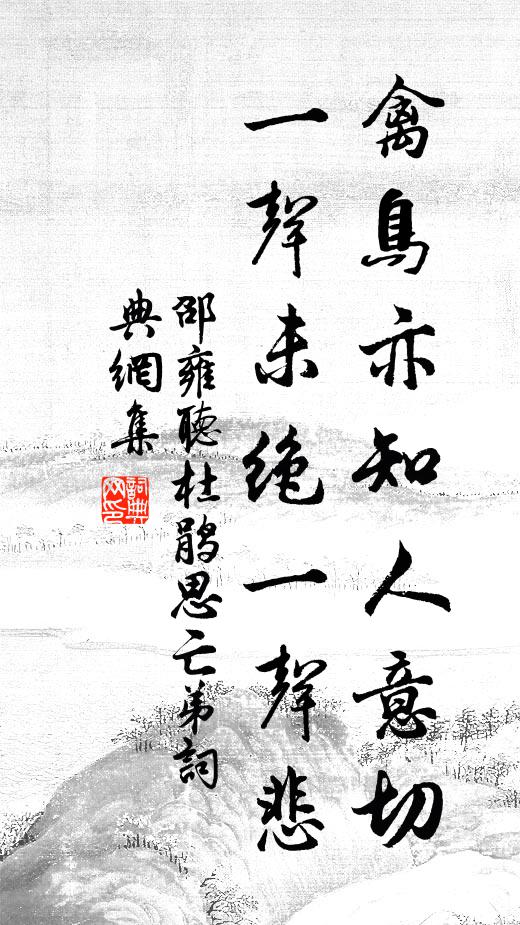 禽鳥亦知人意切
一聲未絶一聲悲
邵雍聽杜鵑思亡弟詞
典網集
詞典
网印